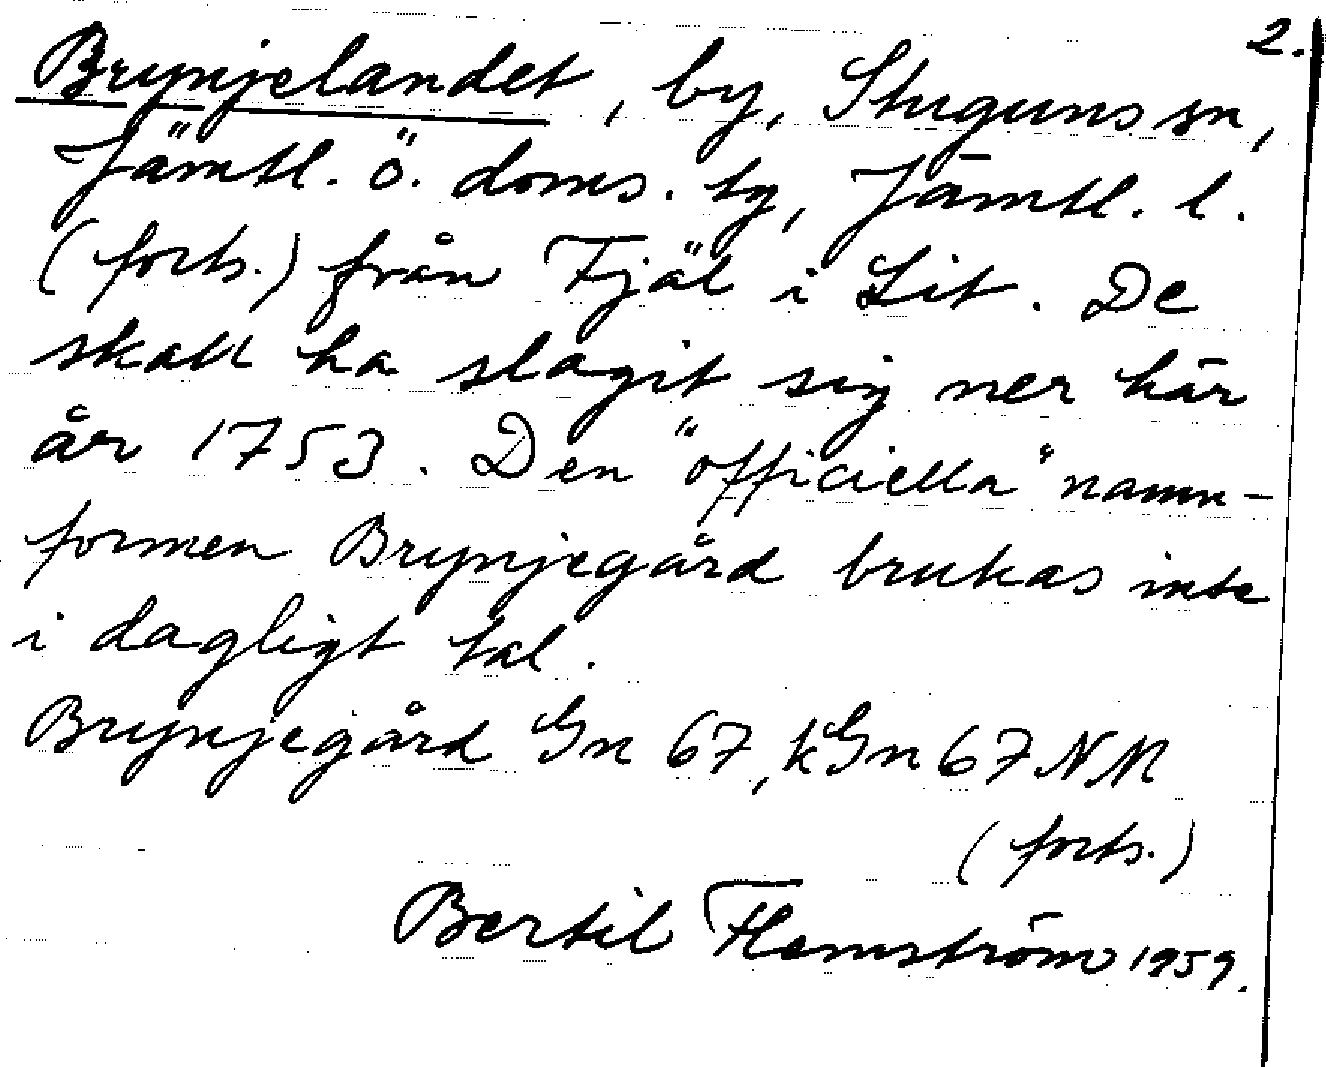 2.
Brynjelandet, by, Stuguns sn,
Jämtl. ö. doms. tg, Jämtl. l.
(forts.) från Fjäl i Lit. De
skall ha slagit sig ner här
år 1753. Den "officiella" namn-
formen Brynjegård brukas inte
i dagligt tal.
Brynjegård Gn 67, kGn 67 NM
(forts.)
Bertil Flemström 1959.